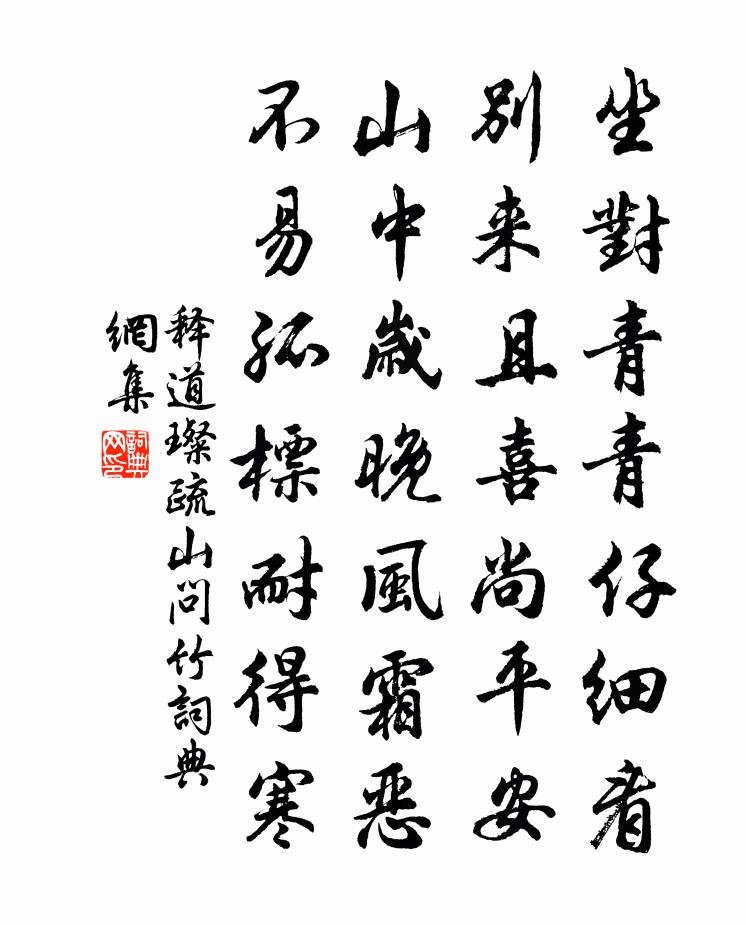 坐對青青仔細看
別来且喜尚平安
山中歲晚風霜惡
不易孤標耐得寒
释道璨疏山問竹詞典
網集
詞典网印